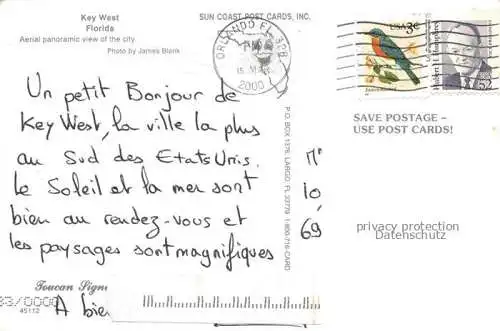 Key West
Florida
Aerial panoramic view of the city.
Photo by James Blank
SUN COAST POST CARDS, INC.
ORLANDO FL 328
15 MAR
2000
USA 3c
Hubert H. Humphrey
52
SAVE POSTAGE –
USE POST CARDS!
P.O. BOX 1376 LARGO FL 33779 1-800-716-CARD
Un petit Bonjour de
Key West, la ville la plus
au Sud des Etats Unis.
Le Soleil et la mer sont
bien au rendez-vous et
les paysages sont magnifiques
A bien
10
69
privacy protection
Datenschutz
Toucan Signs
45112